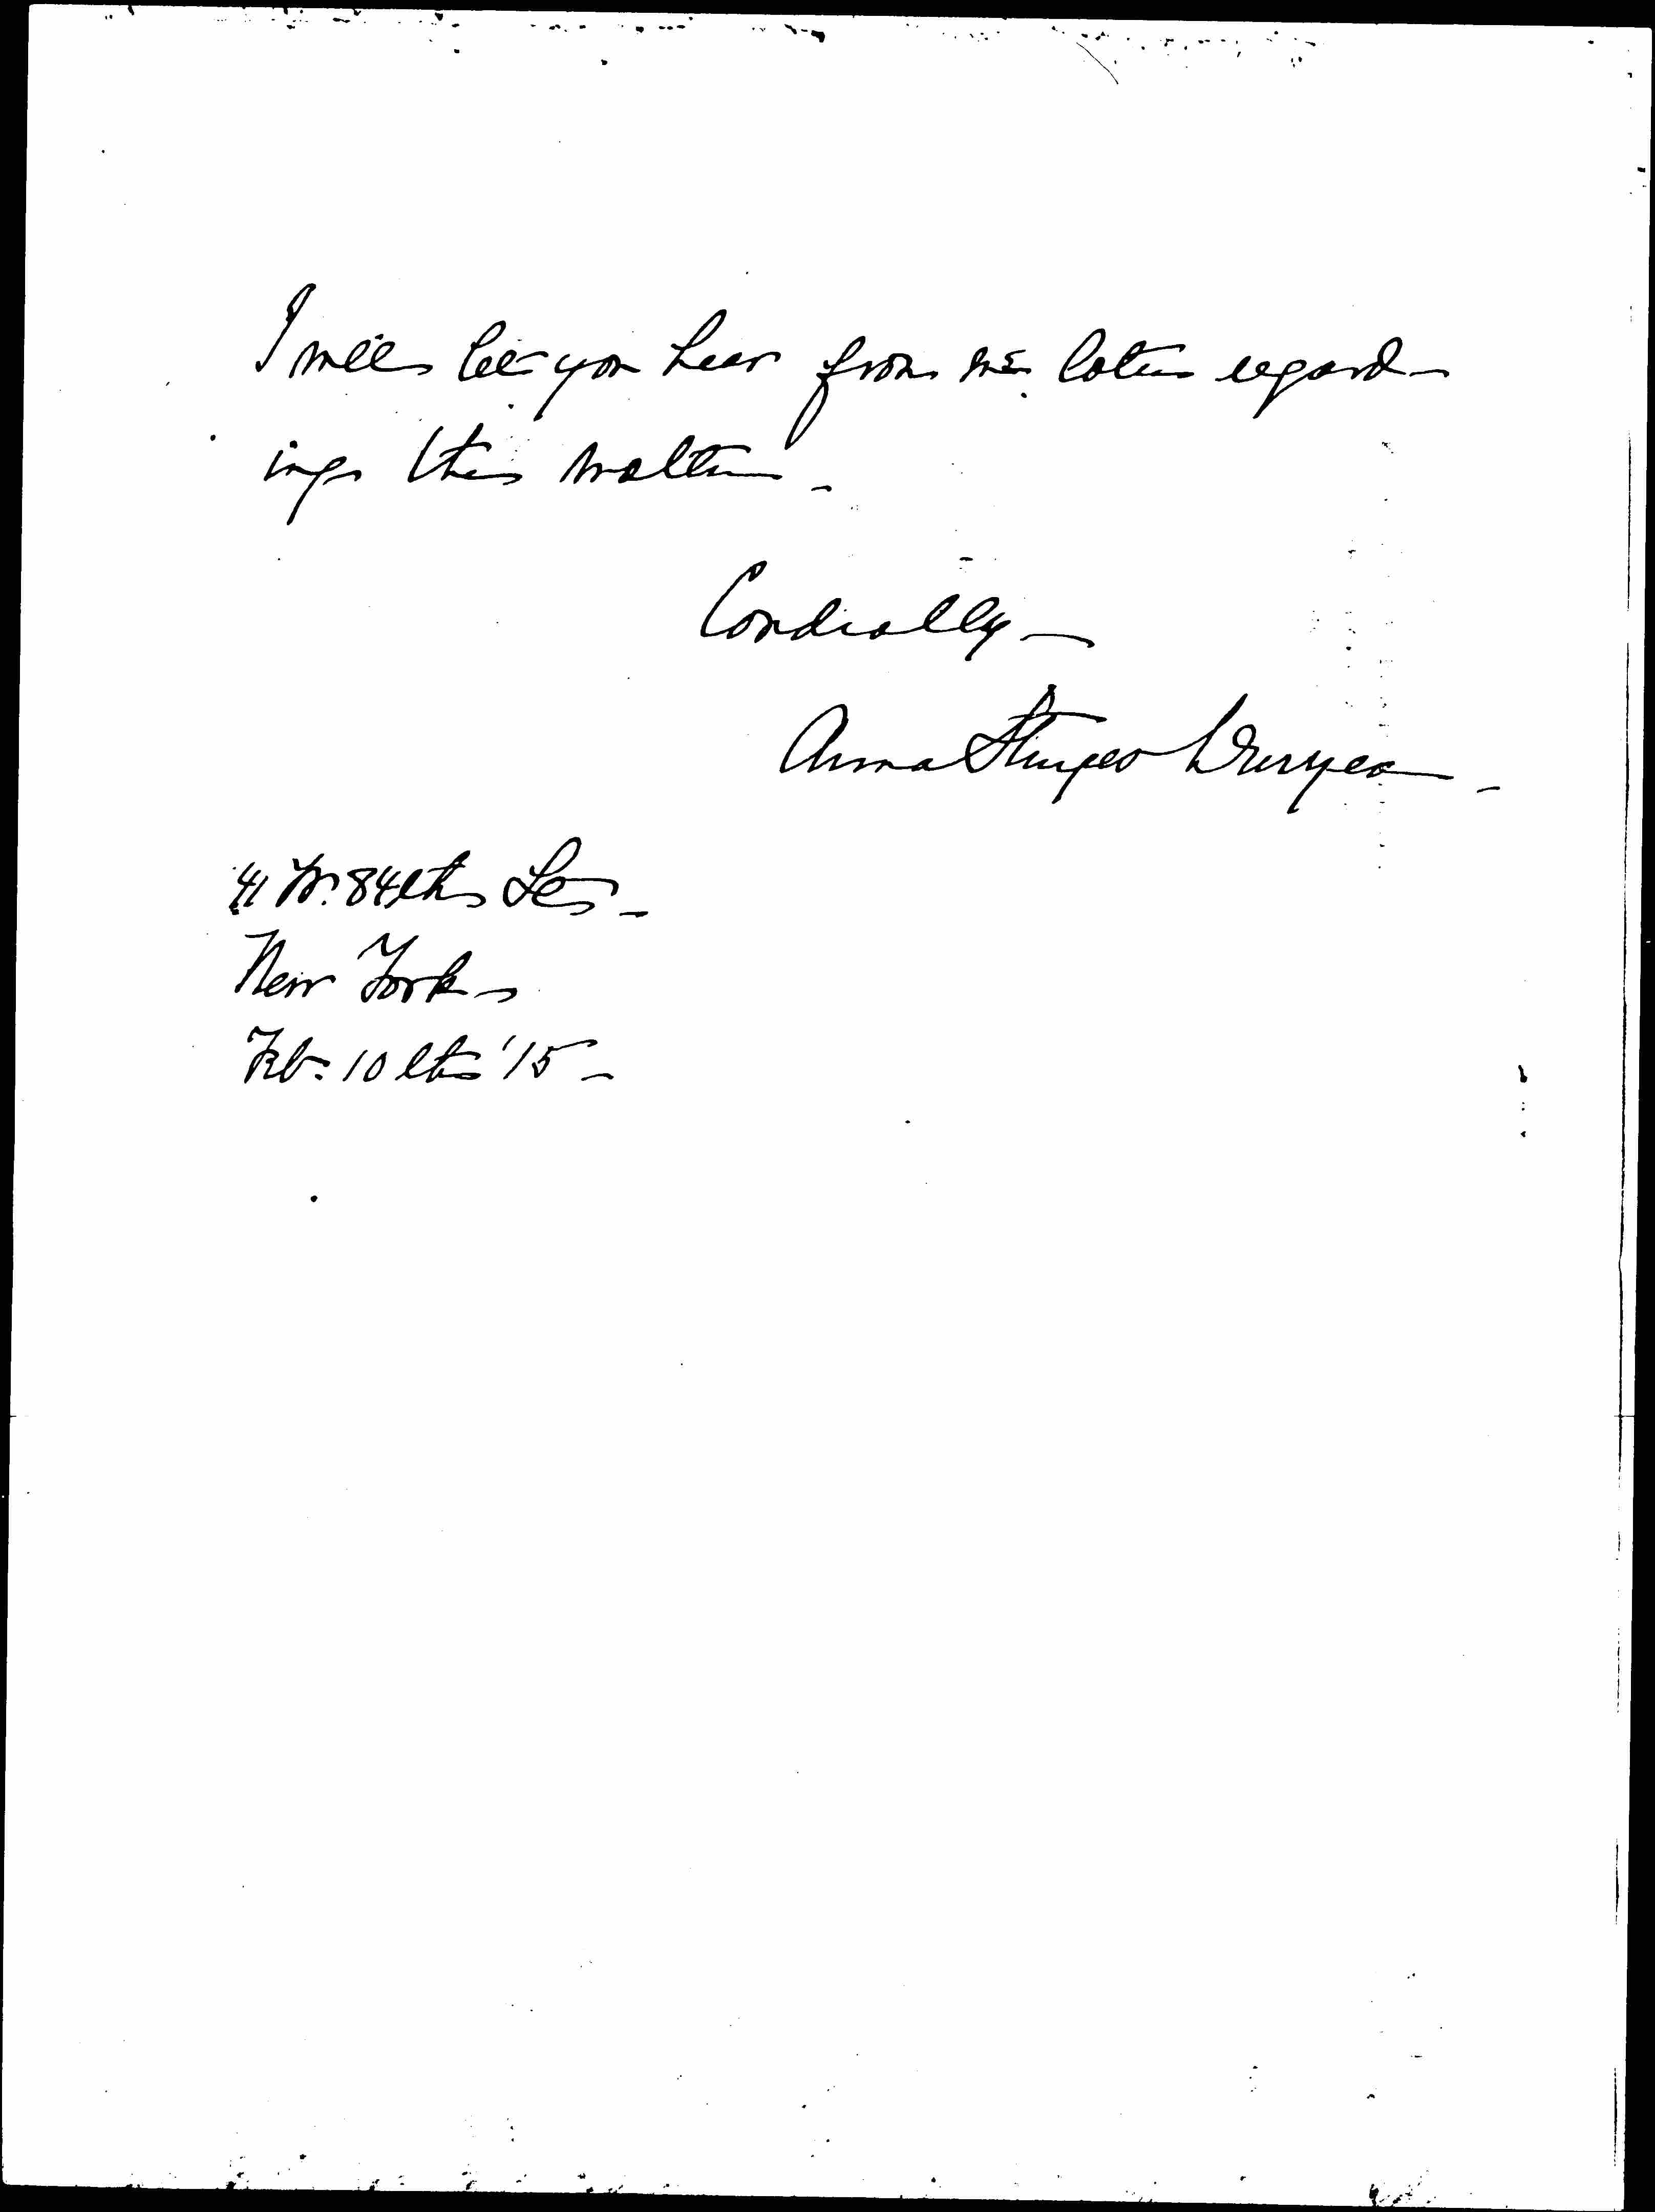 I will let you hear from me later regard-
ing this matter -
Cordially -
Anna Sturges Duryea -
41 W. 84th St -
New York -
Feb. 10th '15 -